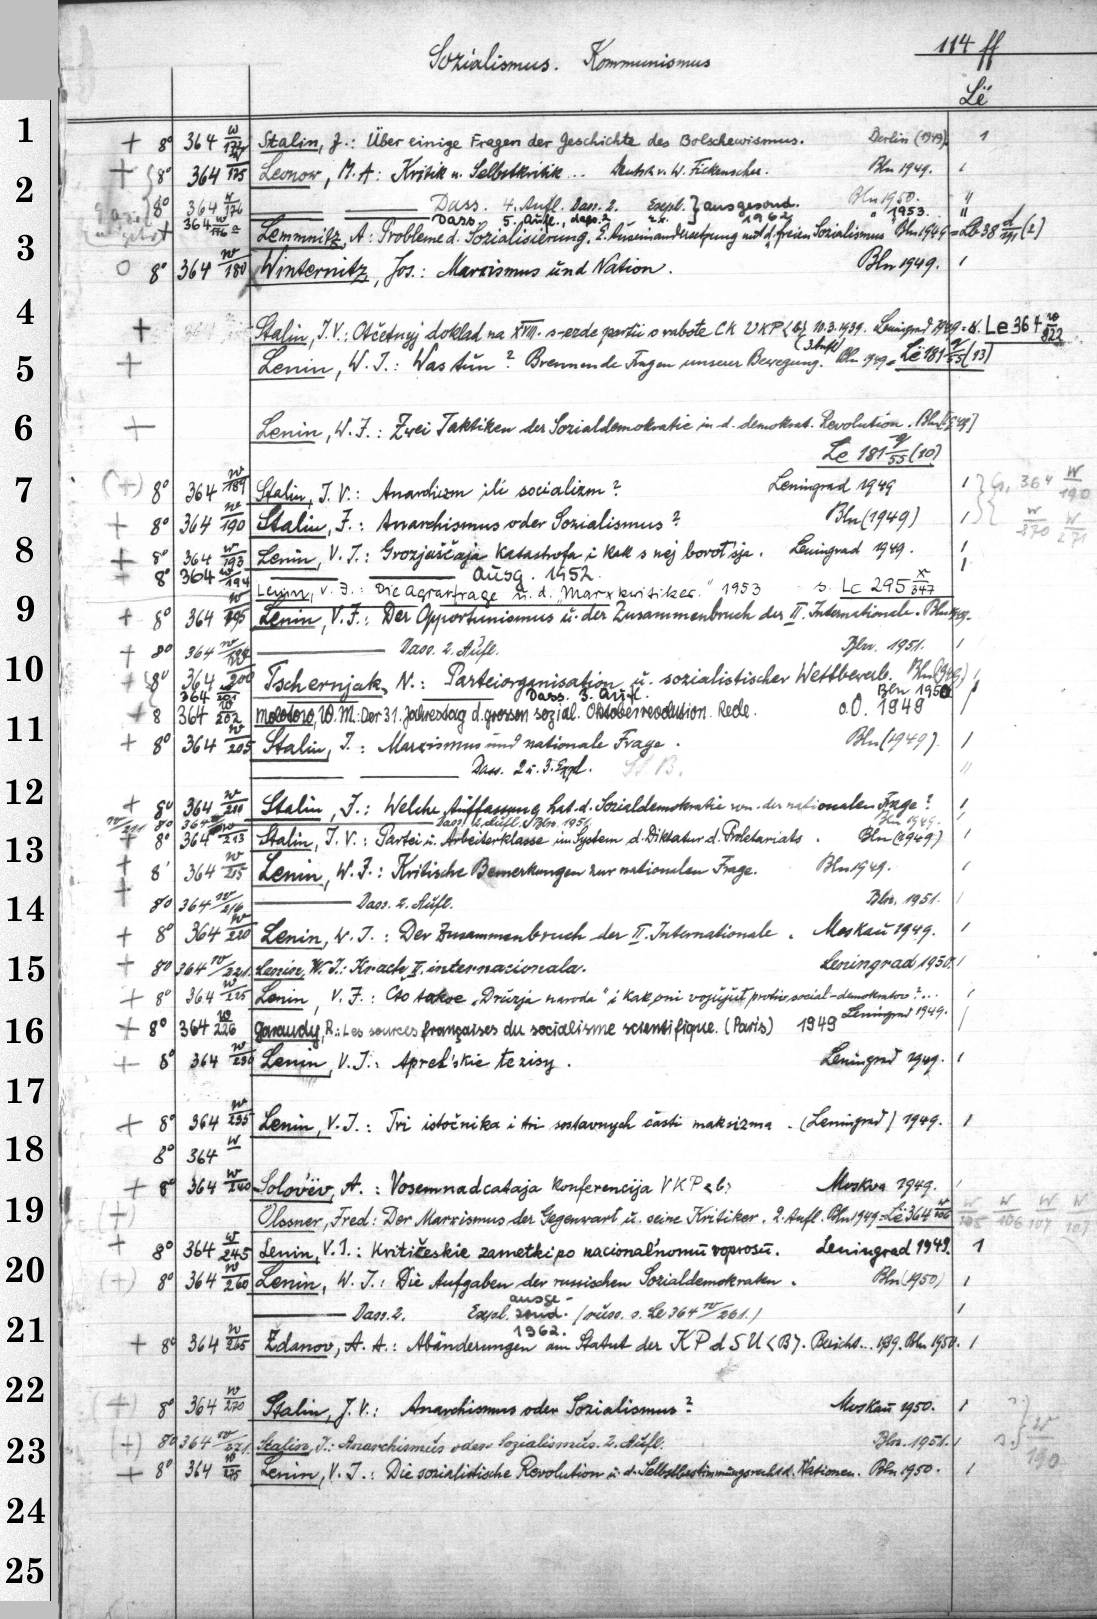 114 ff
Sozialismus. Kommunismus
Lë
1 + 8° 364 w/ Stalin, J.: Über einige Fragen der Geschichte des Bolschewismus. Berlin (1949). 1
+ 8° 364 w/175 Leonow, M. A: Kritik u. Selbstkritik... Deutsch v. W. Fickenscher. Bln 1949. 1
2 8° 364 w/176 Dass. 4. Aufl. Dass. 2. Expl. } ausgesond. Bln 1950. "
364 w/176 a Dass. 5. Aufl., dass. 2 1962 " 1953. "
Lemmnitz, A: Probleme d. Sozialisierung. E. Auseinandersetzung mit d. freien Sozialismus Bln 1949 = Lb 38 (2)
3 O 8° 364 w/180 Winternitz, Jos.: Marxismus und Nation. Bln 1949. 1
4 + Stalin, J. V.: Otčetnyj doklad na XVIII. s-ezde partii o rabote CK VKP<b> 10.3.1939. Leningrad 1949 = s. Le 364 w/822
5 + Lenin, W. I.: Was tun? Brennende Fragen unserer Bewegung. (3. Aufl) Bln 1949 = Lë 181 q/55 (13)
6 + Lenin, W. I.: Zwei Taktiken der Sozialdemokratie in d. demokrat. Revolution. Bln [1949]
Le 181 q/55 (10)
7 (+) 8° 364 w/189 Stalin, I. V.: Anarchizm ili socializm? Leningrad 1949 1 364 w/190
+ 8° 364 w/190 Stalin, J.: Anarchismus oder Sozialismus? Bln (1949) 1 w/270 w/271
8 + 8° 364 w/193 Lenin, V. I.: Grozjaščaja katastrofa i kak s nej borot'sja. Leningrad 1949. 1
+ 8° 364 w/194 Ausg. 1952. 1
Lenin, V. I.: Die Agrarfrage u. d. „Marxkritiker" 1953 s. Lc 295 x/347
9 + 8° 364 w/195 Lenin, V. I.: Der Opportunismus u. der Zusammenbruch der II. Internationale. Bln 1949.
+ 8° 364 w/ Dass. 2. Aufl. Bln. 1951. 1
10 + 8° 364 w/200 Tschernjak, N.: Parteiorganisation u. sozialistischer Wettbewerb. Bln (1949) 1
364 w/201 Dass. 3. Aufl. Bln 1950 1
11 + 8 364 w/202 Molotow, W. M.: Der 31. Jahrestag d. grossen sozial. Oktoberrevolution. Rede. o.O. 1949 1
+ 8° 364 w/205 Stalin, J.: Marxismus und nationale Frage. Bln (1949). 1
Dass. 2 u. 3. Expl. "
12 + 8° 364 w/210 Stalin, J.: Welche Auffassung hat d. Sozialdemokratie von der nationalen Frage? Bln 1949. 1
w/211 8° 364 Dass. 2. Aufl. Bln. 1951. 1
13 + 8° 364 w/213 Stalin, J. V.: Partei u. Arbeiterklasse im System d. Diktatur d. Proletariats. Bln (1949) 1
+ 8° 364 w/215 Lenin, W. I.: Kritische Bemerkungen zur nationalen Frage. Bln 1949. 1
14 + 8° 364 w/216 Dass. 2. Aufl. Bln. 1951. 1
+ 8° 364 w/220 Lenin, W. I.: Der Zusammenbruch der II. Internationale. Moskau 1949. 1
15 + 8° 364 w/221. Lenin, W. I.: Krach II. internacionala. Leningrad 1950. 1
+ 8° 364 w/225 Lenin, V. I.: Čto takoe „Druzja naroda" i kak oni vojujut protiv social-demokratov?... Leningrad 1949. 1
16 + 8° 364 w/226 Garaudy, R.: Les sources françaises du socialisme scientifique. (Paris) 1949 1
+ 8° 364 w/230 Lenin, V. I.: Aprel'skie tezisy. Leningrad 1949. 1
17 + 8° 364 w/235 Lenin, V. I.: Tri istočnika i tri sostavnych časti maksizma. (Leningrad) 1949. 1
18 8° 364 w
+ 8° 364 w/240 Solov'ëv, A.: Vosemnadcataja konferencija VKP<b> Moskva 1949. 1
19 (+) Ölssner, Fred: Der Marxismus der Gegenwart u. seine Kritiker. 2. Aufl. Bln 1949 = Lë 364 w/106 w/105 w/106 w/107 w/107
+ 8° 364 w/245 Lenin, V. I.: Kritičeskie zametki po nacional'nomu voprosu. Leningrad 1949. 1
20 (+) 8° 364 w/260 Lenin, W. I.: Die Aufgaben der russischen Sozialdemokraten. Bln (1950) 1
Dass. 2. Expl. ausge-sond. 1962. (russ. s. Le 364 w/261.) 1
21 + 8° 364 w/265 Ždanov, A. A.: Abänderungen am Statut der KPdSU <B>. Bericht... 1939. Bln 1950. 1
22 (+) 8° 364 w/270 Stalin, J. V.: Anarchismus oder Sozialismus? Moskau 1950. 1
23 (+) 8° 364 w/271. Stalin, J.: Anarchismus oder Sozialismus. 2. Aufl. Bln. 1951. 1 s. w/190
+ 8° 364 w/275 Lenin, V. I.: Die sozialistische Revolution u. d. Selbstbestimmungsrecht d. Nationen. Bln 1950. 1
24
25